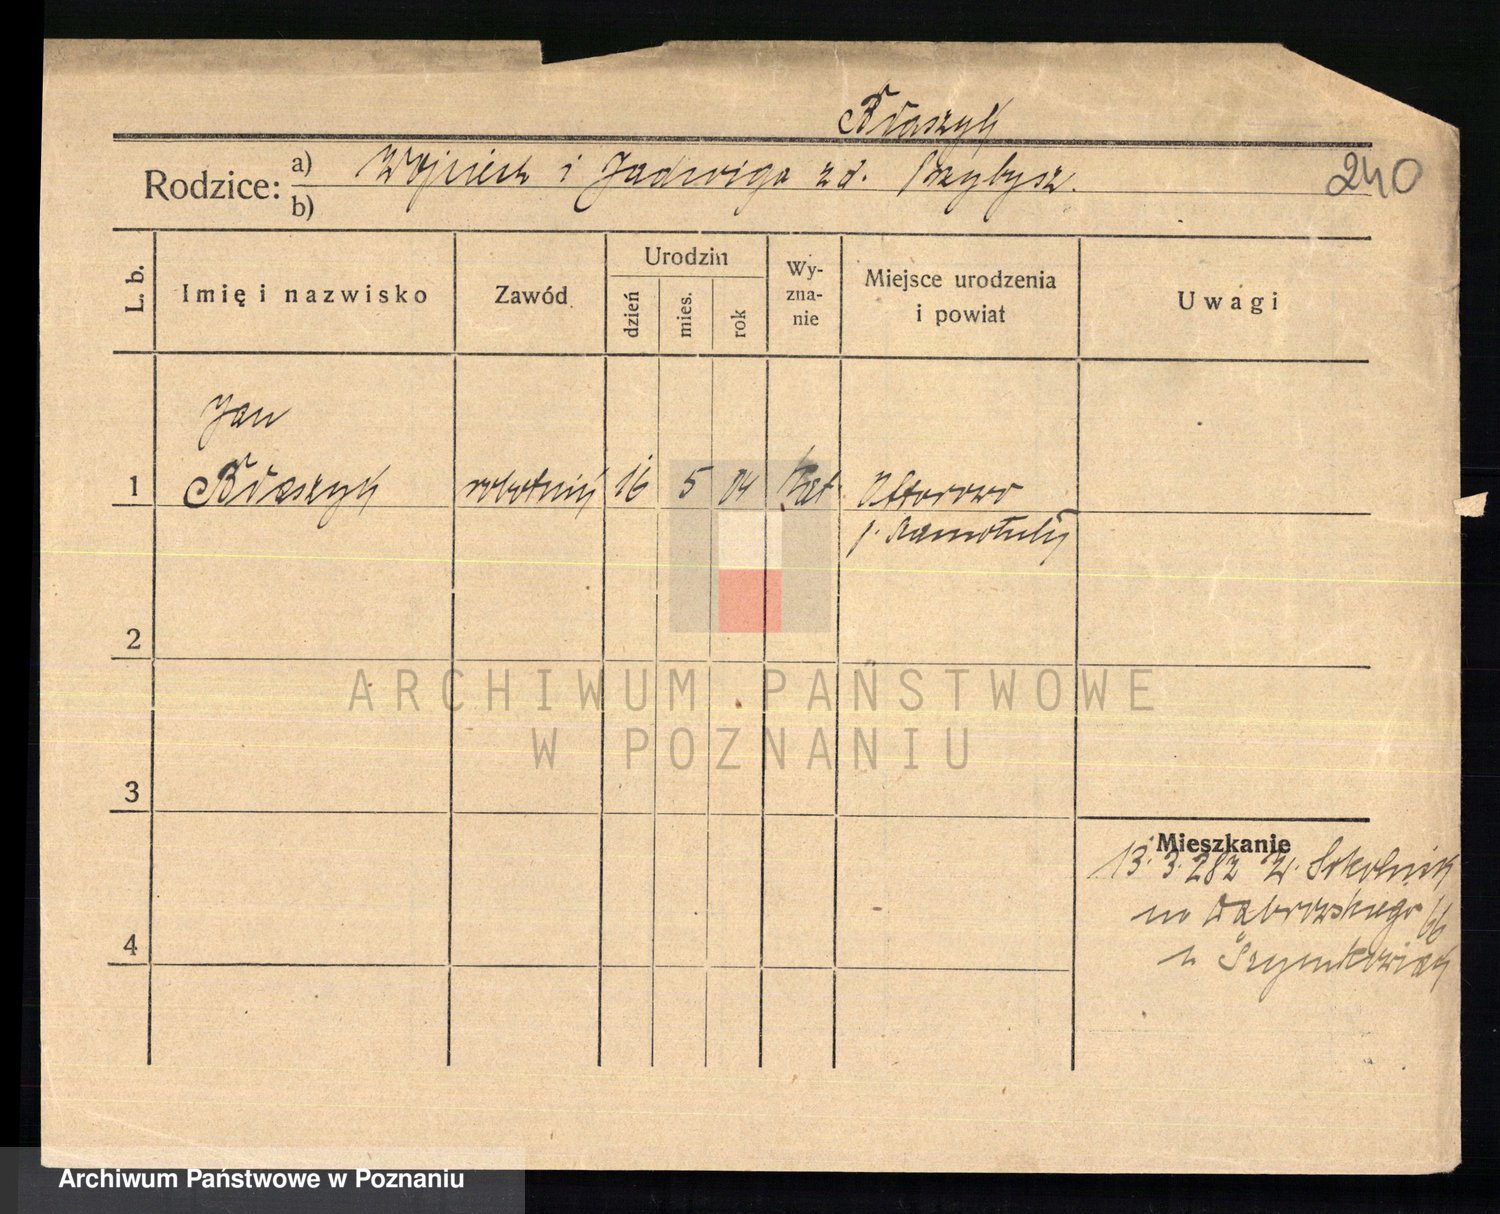 Błaszyk
Rodzice: a) Wojciech i Jadwiga zd. Przybysz.
b)
240
L. b.
Imię i nazwisko
Zawód
Urodzin
dzień
mies.
rok
Wy-
zna-
nie
Miejsce urodzenia
i powiat
Uwagi
Jan
1 Błaszyk robotnik 16 5 04 kat Ottorowo
p. Szamotuły
2
3
4
Mieszkanie
13. 3. 28 z
na Dąbrowskiego 66
u Szymkowiak
ARCHIWUM PAŃSTWOWE
W POZNANIU
Archiwum Państwowe w Poznaniu